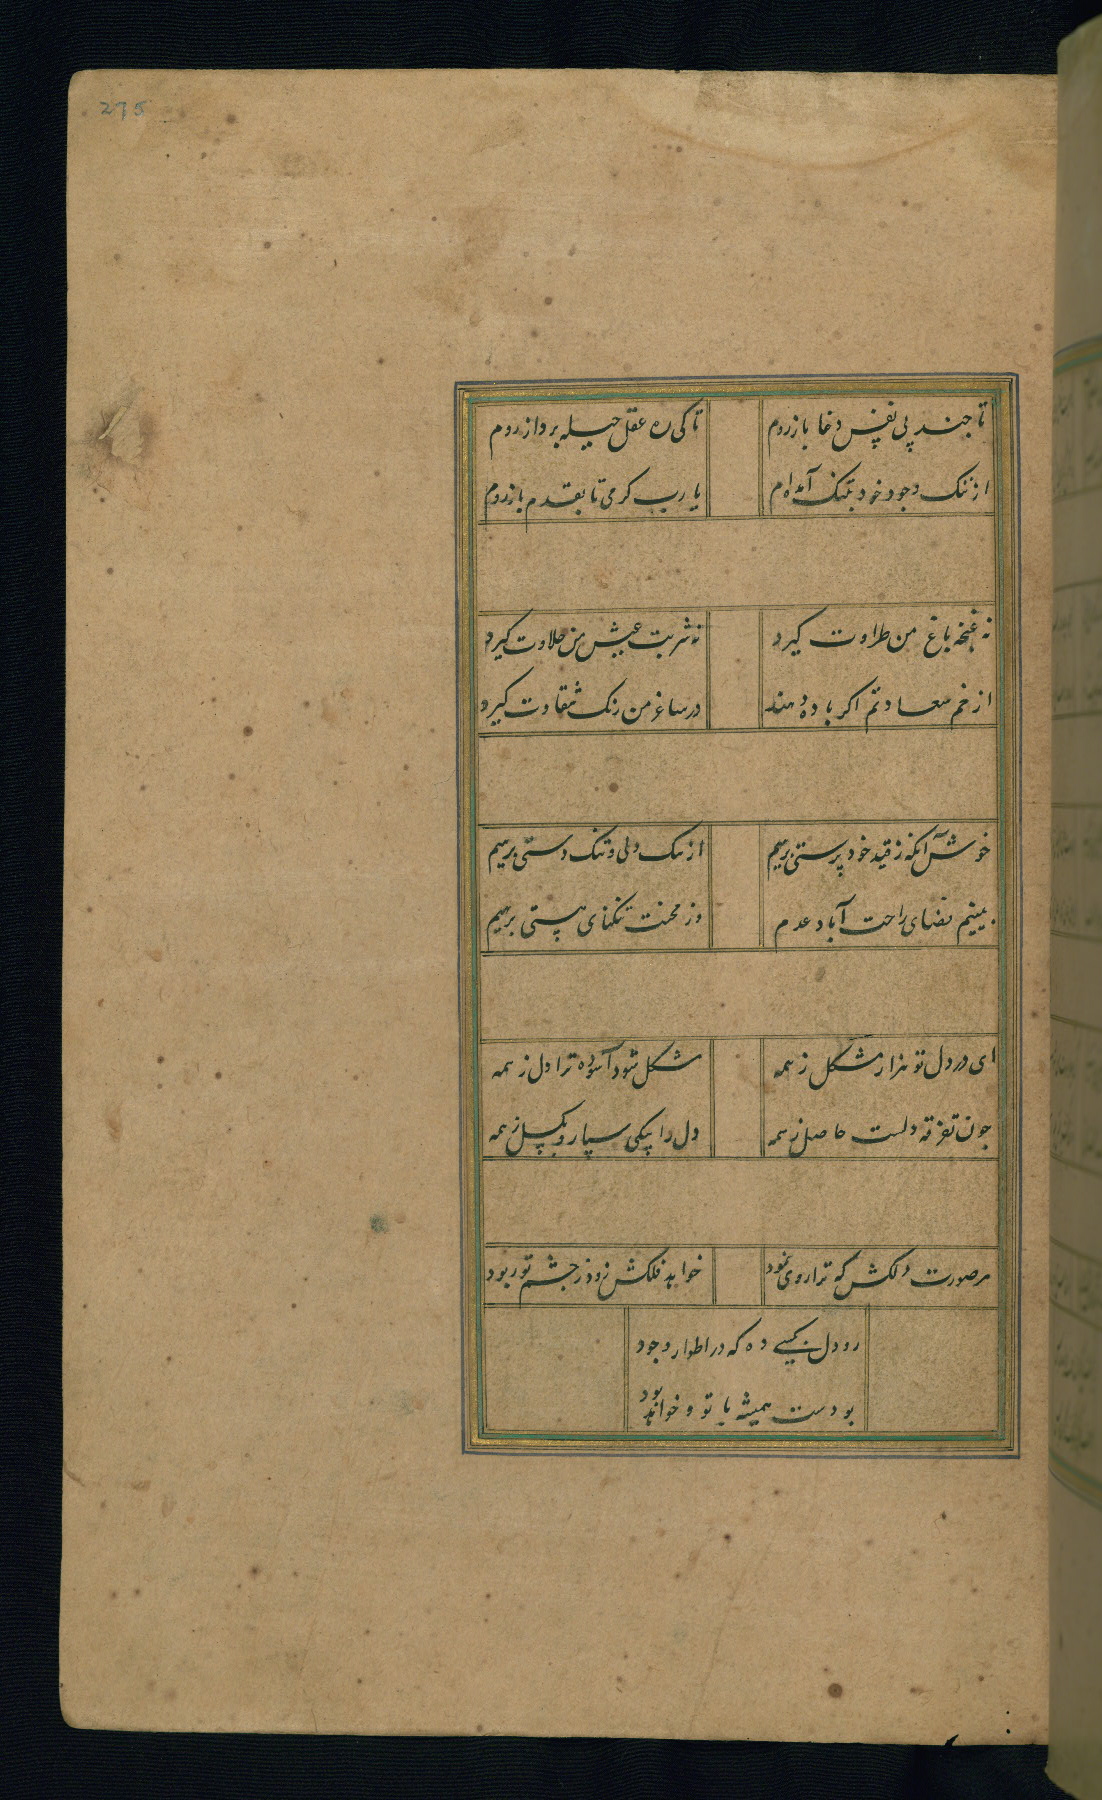 275
تا جند پی نفس دغا باز روم تا کی ره عقل حیله برداز روم
از ننک وجود خود بتنک آمده‌ام یا رب کرمی تا بقدم باز روم
نه غنجه باغ من طراوت کیرد نه شربت عیش من حلاوت کیرد
از خم سعادتم اکر باده دهند در ساغر من رنک شقاوت کیرد
خوش آنکه ز قید خود پرستی برهیم از ننک دلی و تنک دستی برهیم
بینیم فضای راحت آباد عدم وز محنت تنکنای هستی برهیم
ای در دل تو هزار مشکل ز همه مشکل شود آسوده ترا دل ز همه
جون تفرقه دلست حاصل ز همه دل را بیکی سپار و بکسل ز همه
هر صورت دلکش که ترا روی نمود خواهد فلکش زود ز جشم تو ربود
رو دل بکسی ده که در اطوار وجود
بودست همیشه با تو و خواهد بود